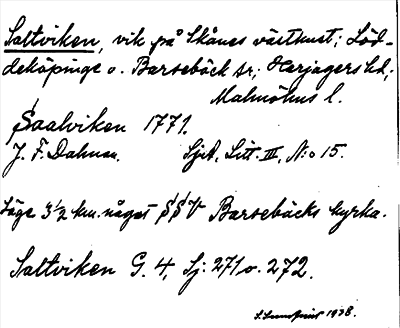 Saltviken, vik på Skånes västkust; Löd-
deköpinge o. Barsebäck sr; Harjagers hd;
Malmöhus l.
Saalviken 1771.
J. F. Dahman. SjA, Litt. III, N:o 15.
Läge 3 ½ km. något SSV Barsebäcks kyrka.
Saltviken G. 4, Sj: 271 o. 272.
1938.